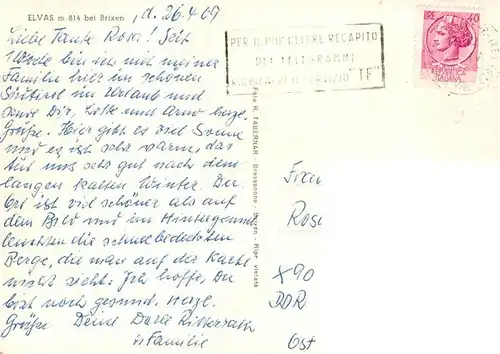 ELVAS m. 814 bei Brixen , d. 26.4.69
Liebe Tante Rosa! Seit
bin ich mit meiner
Familie hier im schönen
Südtirol im Urlaub und
sende Dir, und herzl.
Grüße. Hier gibt es viel Sonne
und es ist sehr warm, das
tut uns sehr gut nach dem
langen kalten Winter. Der
Ort ist viel schöner als auf
dem Bild und im Hintergrund
leuchten die schneebedeckten
Berge, die man auf der Karte
nicht sieht. Ich hoffe, Du
bist noch gesund, herzl.
Grüße Deine
u. Familie
Foto R. TABERNAR - Bressanone - Brixen - Ripr. vietata
PER IL PIÙ CELERE RECAPITO
DEI TELEGRAMMI
"TF"
LIRE 40
Frau
Rosi
X90
DDR
Ost